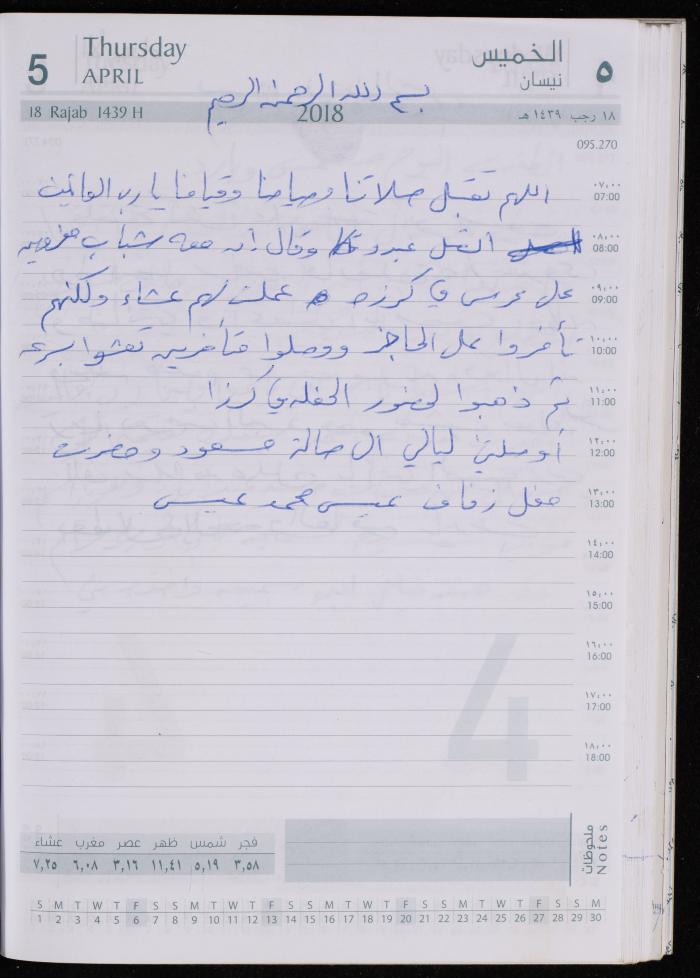 5
Thursday
APRIL
الخميس
نيسان
٥
بسم الله الرحمن الرحيم
18 Rajab 1439 H
2018
١٨ رجب ١٤٣٩ هـ
095.270
اللهم تقبل صلاتنا وصيامنا وقيامنا يا رب العالمين
٠٧:٠٠
07:00
اتصل عبدو وقال إن معه شباب معزومين
٠٨:٠٠
08:00
على عرس في كرزه عملت لهم عشاء ولكنهم
٠٩:٠٠
09:00
تأخروا على الحاجز ووصلوا متأخرين تعشوا بسرعه
١٠:٠٠
10:00
ثم ذهبوا لحضور الحفله في كرزا
١١:٠٠
11:00
أوصلني ليالي الى صالة مسعود وحضرت
١٢:٠٠
12:00
حفل زفاف عيسى محمد عيسى
١٣:٠٠
13:00
١٤:٠٠
14:00
١٥:٠٠
15:00
١٦:٠٠
16:00
١٧:٠٠
17:00
١٨:٠٠
18:00
4
فجر شمس ظهر عصر مغرب عشاء
٣,٥٨ ٥,١٩ ١١,٤١ ٣,١٦ ٦,٠٨ ٧,٢٥
ملحوظات
Notes
S M T W T F S S M T W T F S S M T W T F S S M T W T F S S M
1 2 3 4 5 6 7 8 9 10 11 12 13 14 15 16 17 18 19 20 21 22 23 24 25 26 27 28 29 30